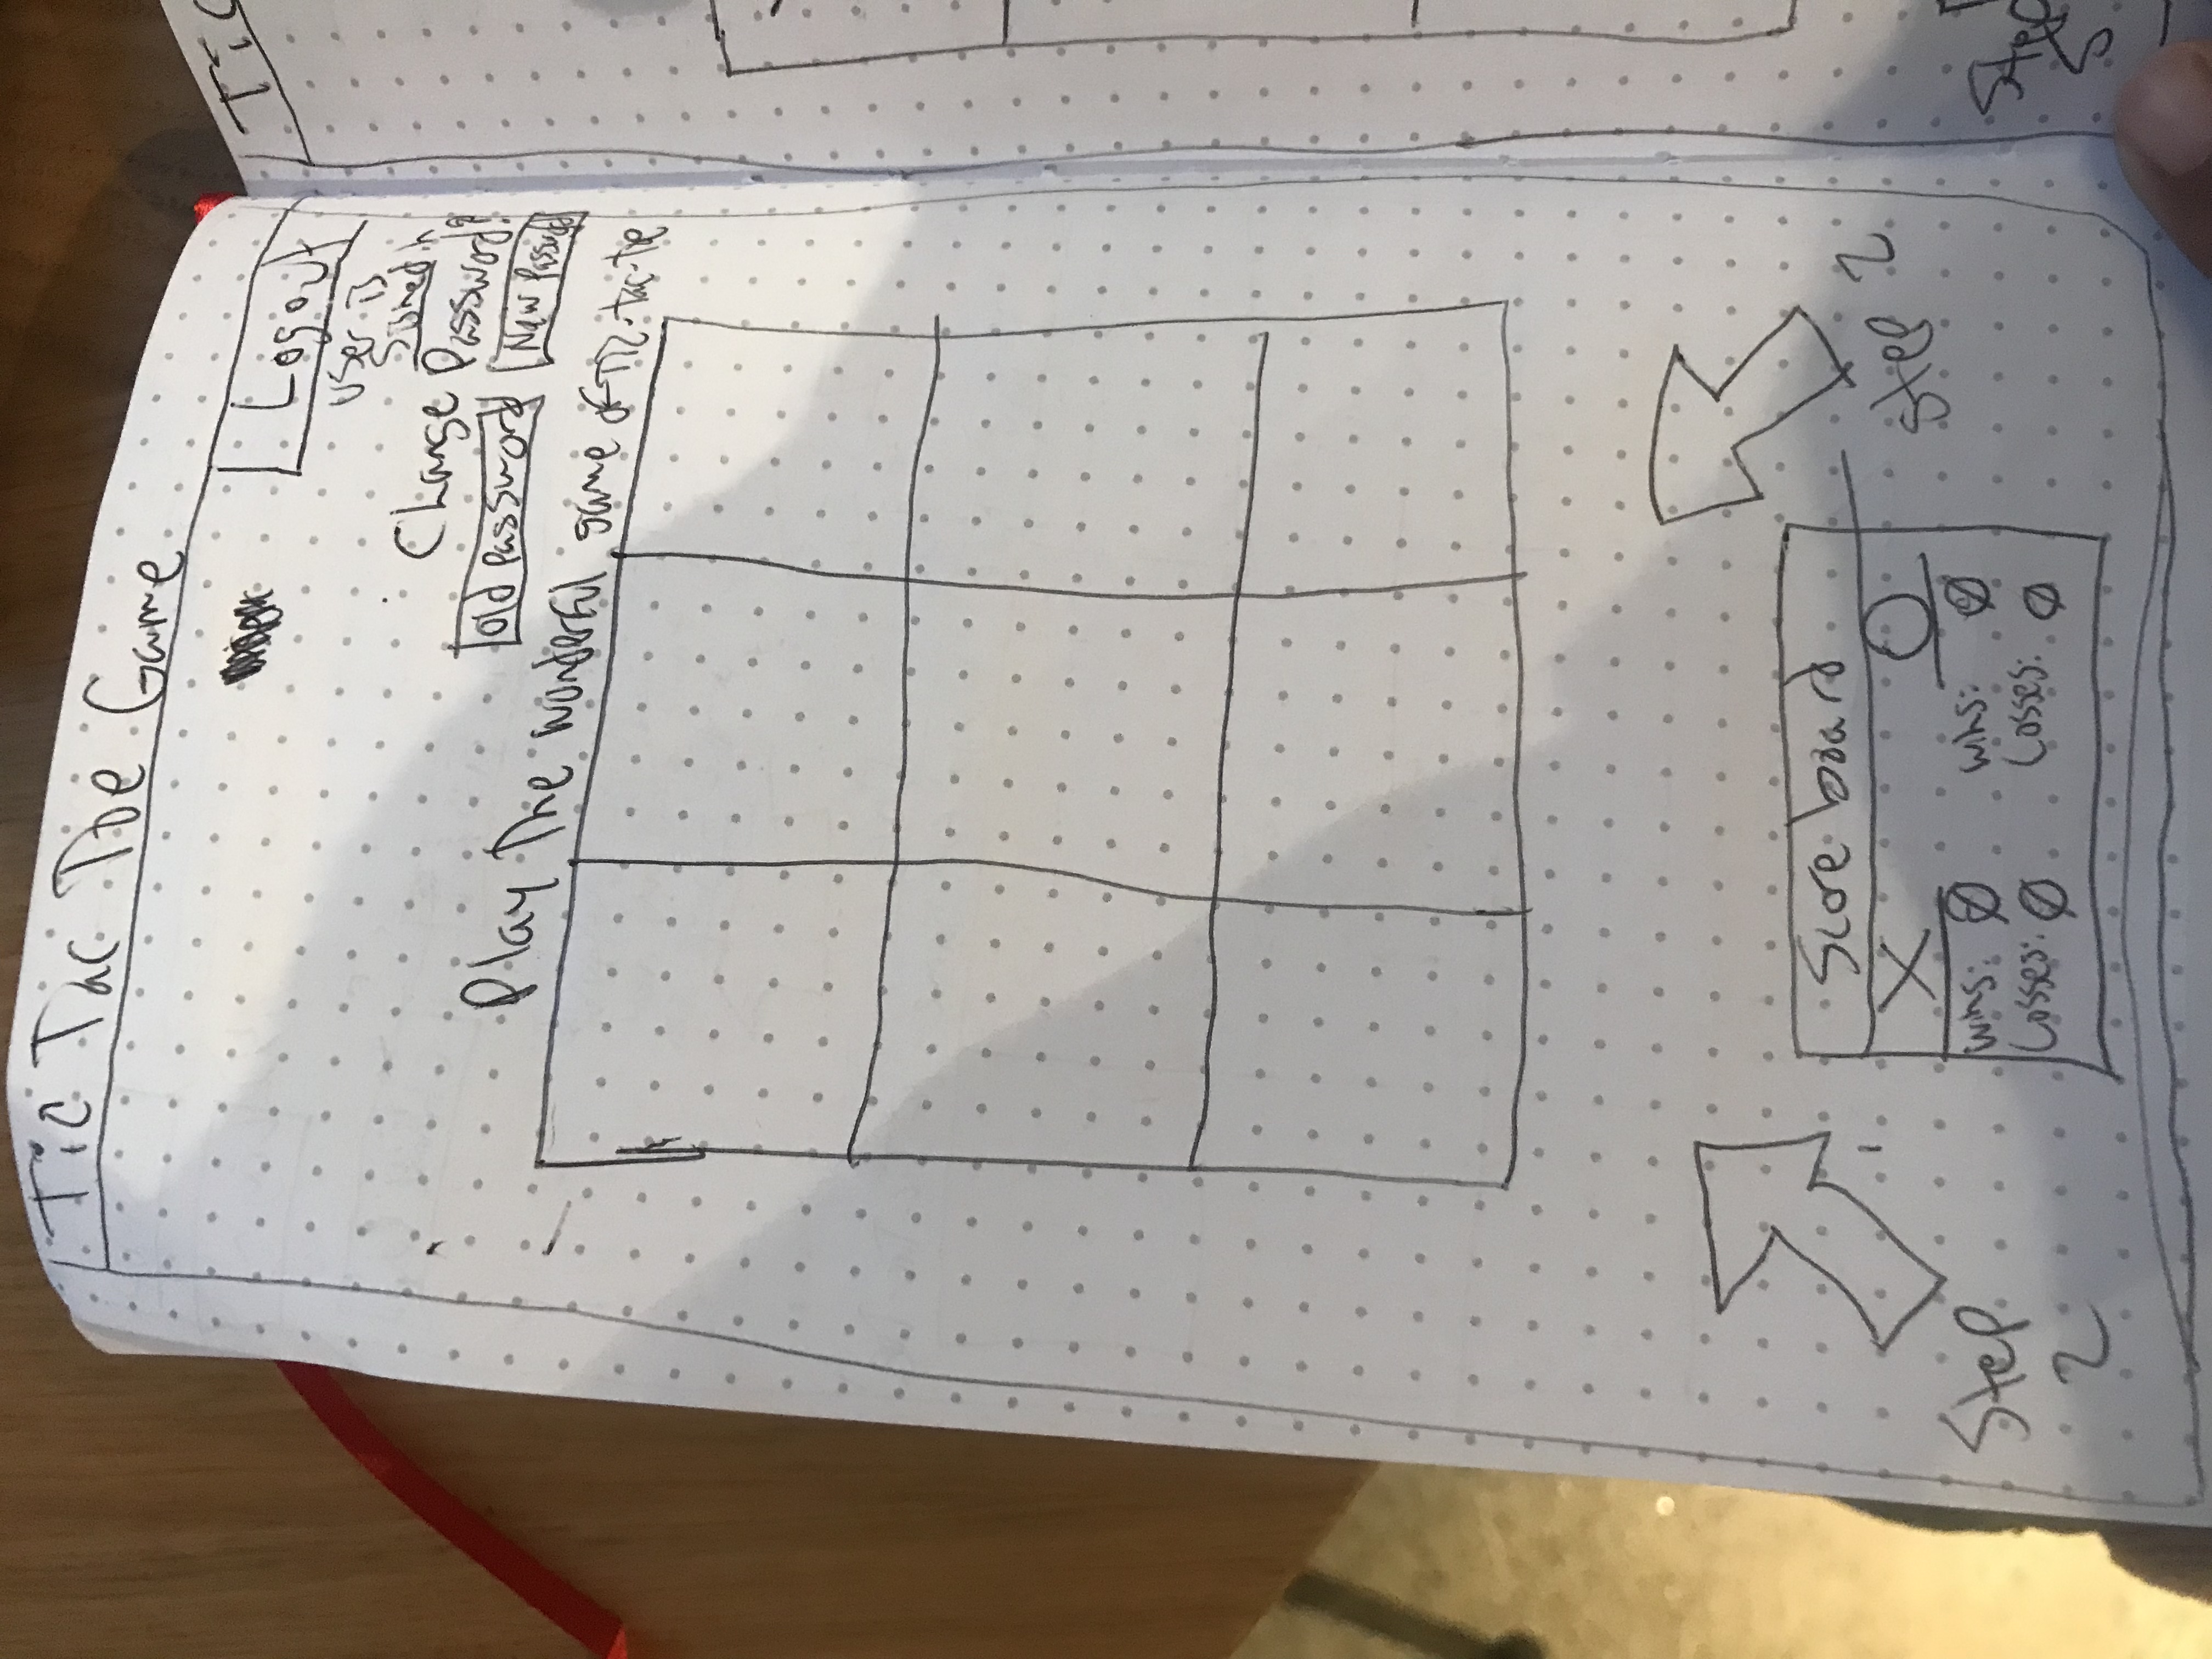 Tic Tac Toe Game
Logout
User is
Signed in
Change Password?
Old Password
New Password
Play The wonderful game of Tic-tac-toe
Score board
X O
wins: Ø wins: Ø
Losses: Ø Losses: Ø
Step
2
Step 2
Tic
Step
5